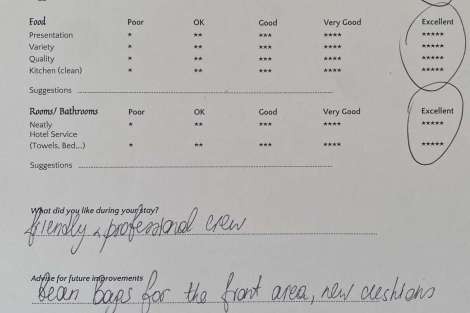 Food Poor OK Good Very Good Excellent
Presentation * ** *** **** *****
Variety * ** *** **** *****
Quality * ** *** **** *****
Kitchen (clean) * ** *** **** *****
Suggestions
Rooms/ Bathrooms Poor OK Good Very Good Excellent
Neatly * ** *** **** *****
Hotel Service
(Towels, Bed,..) * ** *** **** *****
Suggestions
What did you like during your stay?
friendly & professional crew
Advise for future improvements
Bean bags for the front area, new cushions